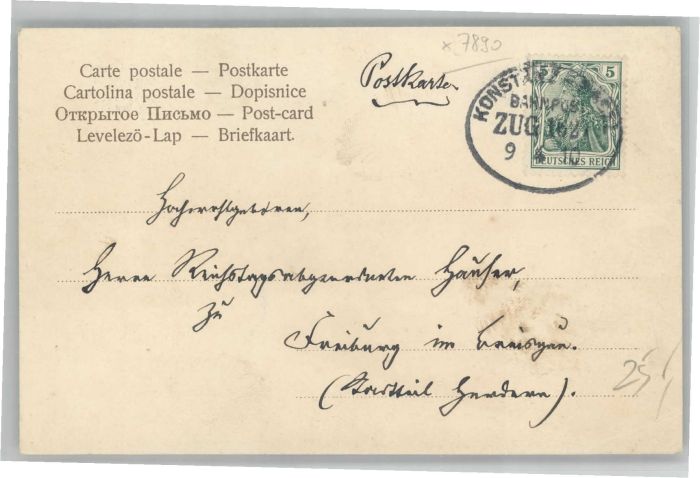 × 7890
Carte postale — Postkarte
Cartolina postale — Dopisnice
Открытое Письмо — Post-card
Levelező-Lap — Briefkaart.
Postkarte
5
KONSTANZ
BAHNPOST
ZUG
9 10
DEUTSCHES REICH
Hochwohlgeboren,
Herrn Reichstagsabgeordneten Häuser,
zu
Freiburg im Breisgau.
(Stadtteil Herdern).
25,